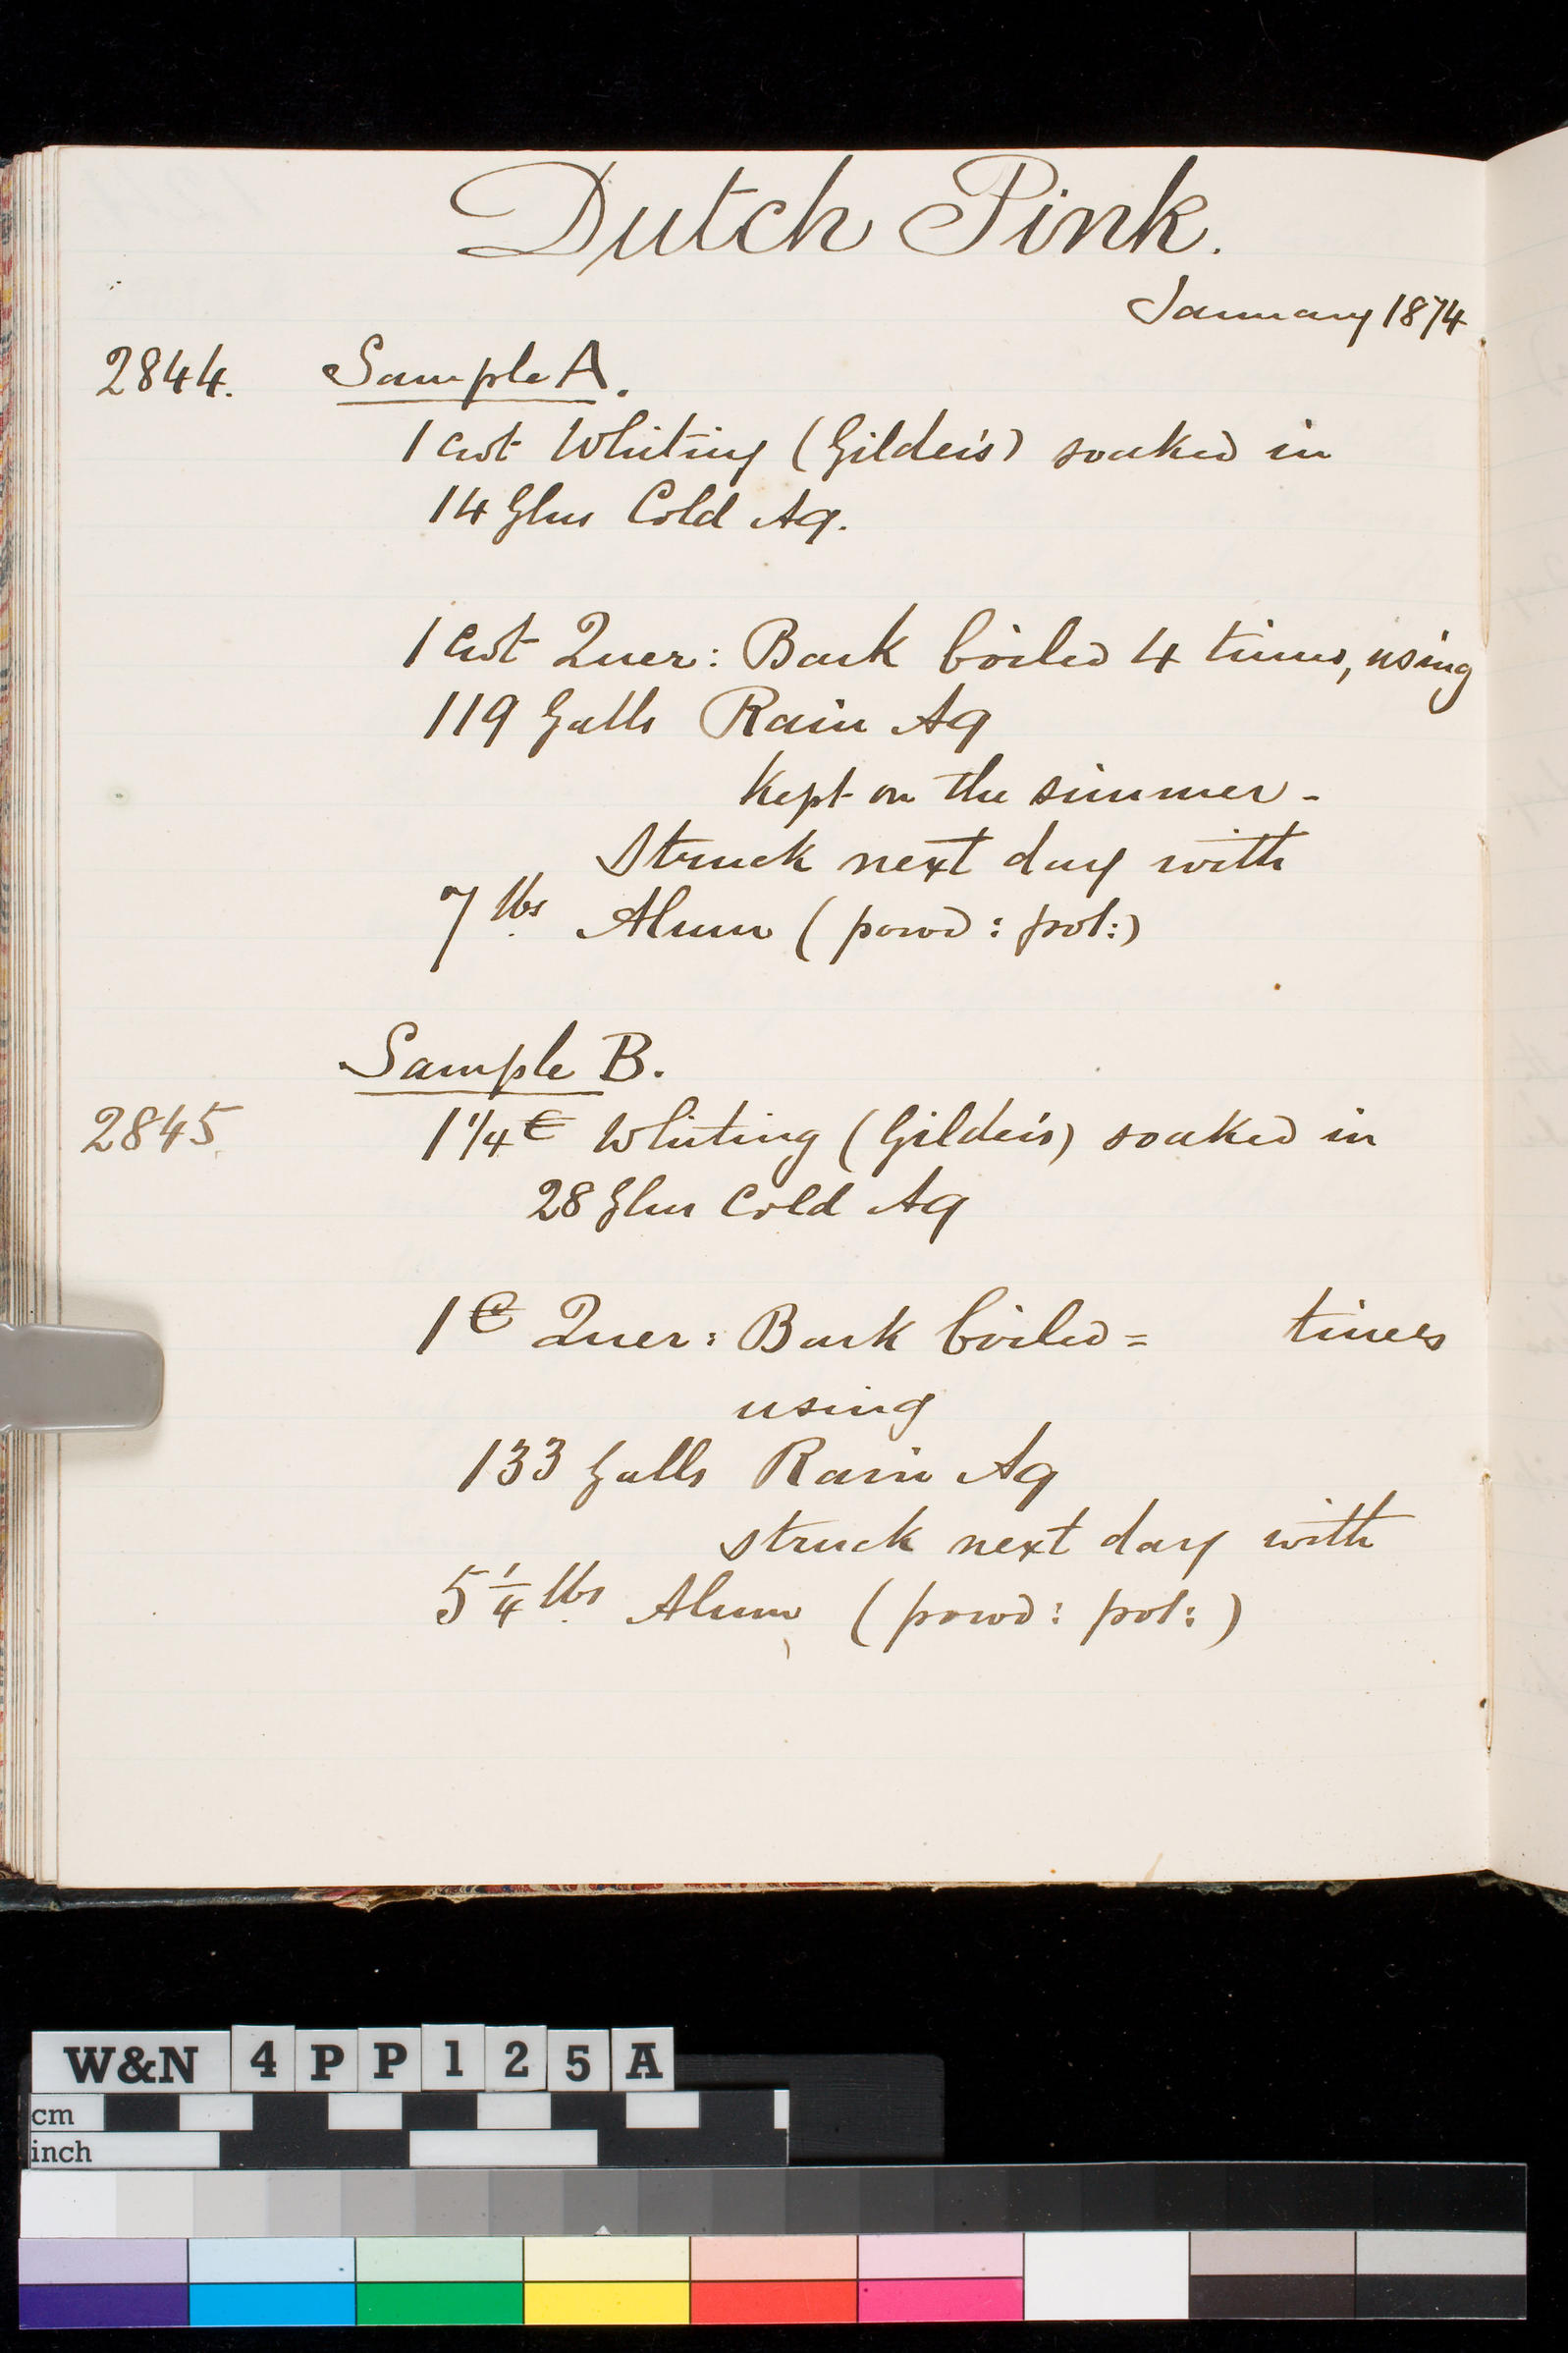 Dutch Pink.
January 1874
2844. Sample A.
1 cwt Whiting (Gilder's) soaked in
14 Glns Cold Aq.
1 cwt Quer: Bark boiled 4 times, using
119 Galls Rain Aq
kept on the simmer -
Struck next day with
7 lbs Alum (powd: pot:)
Sample B.
2845. 1 1/4 C Whiting (Gilder's) soaked in
28 Glns Cold Aq
1 C Quer: Bark boiled = times
using
133 Galls Rain Aq
struck next day with
5 1/4 lbs Alum (powd: pot:)
W&N 4PP125A
cm
inch